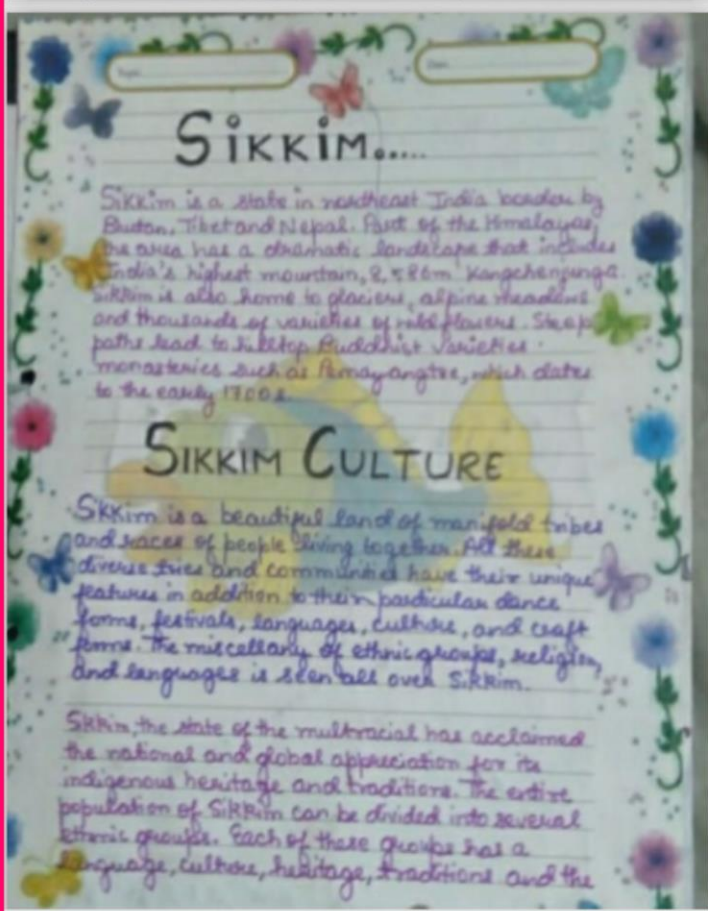 SiKKiM.....
Sikkim is a state in northeast India border by
Butan, Tibet and Nepal. Part of the Himalayas,
the area has a dramatic landscape that includes
India's highest mountain, 8,586m Kangchenjunga.
Sikkim is also home to glaciers, alpine meadows
and thousands of varieties of wildflowers. Steep
paths lead to hilltop Buddhist Varieties
monasteries such as Pemayangtse, which dates
to the early 1700s.
SIKKIM CULTURE
Sikkim is a beautiful land of manifold tribes
and races of people living together. All these
diverse tries and communities have their unique
features in addition to their particular dance
forms, festivals, languages, culture, and craft
forms. The miscellany of ethnic groups, religion,
and languages is seen all over Sikkim.
Sikkim, the state of the multiracial has acclaimed
the national and global appreciation for its
indigenous heritage and traditions. The entire
population of Sikkim can be divided into several
ethnic groups. Each of these groups has a
language, culture, heritage, traditions and the